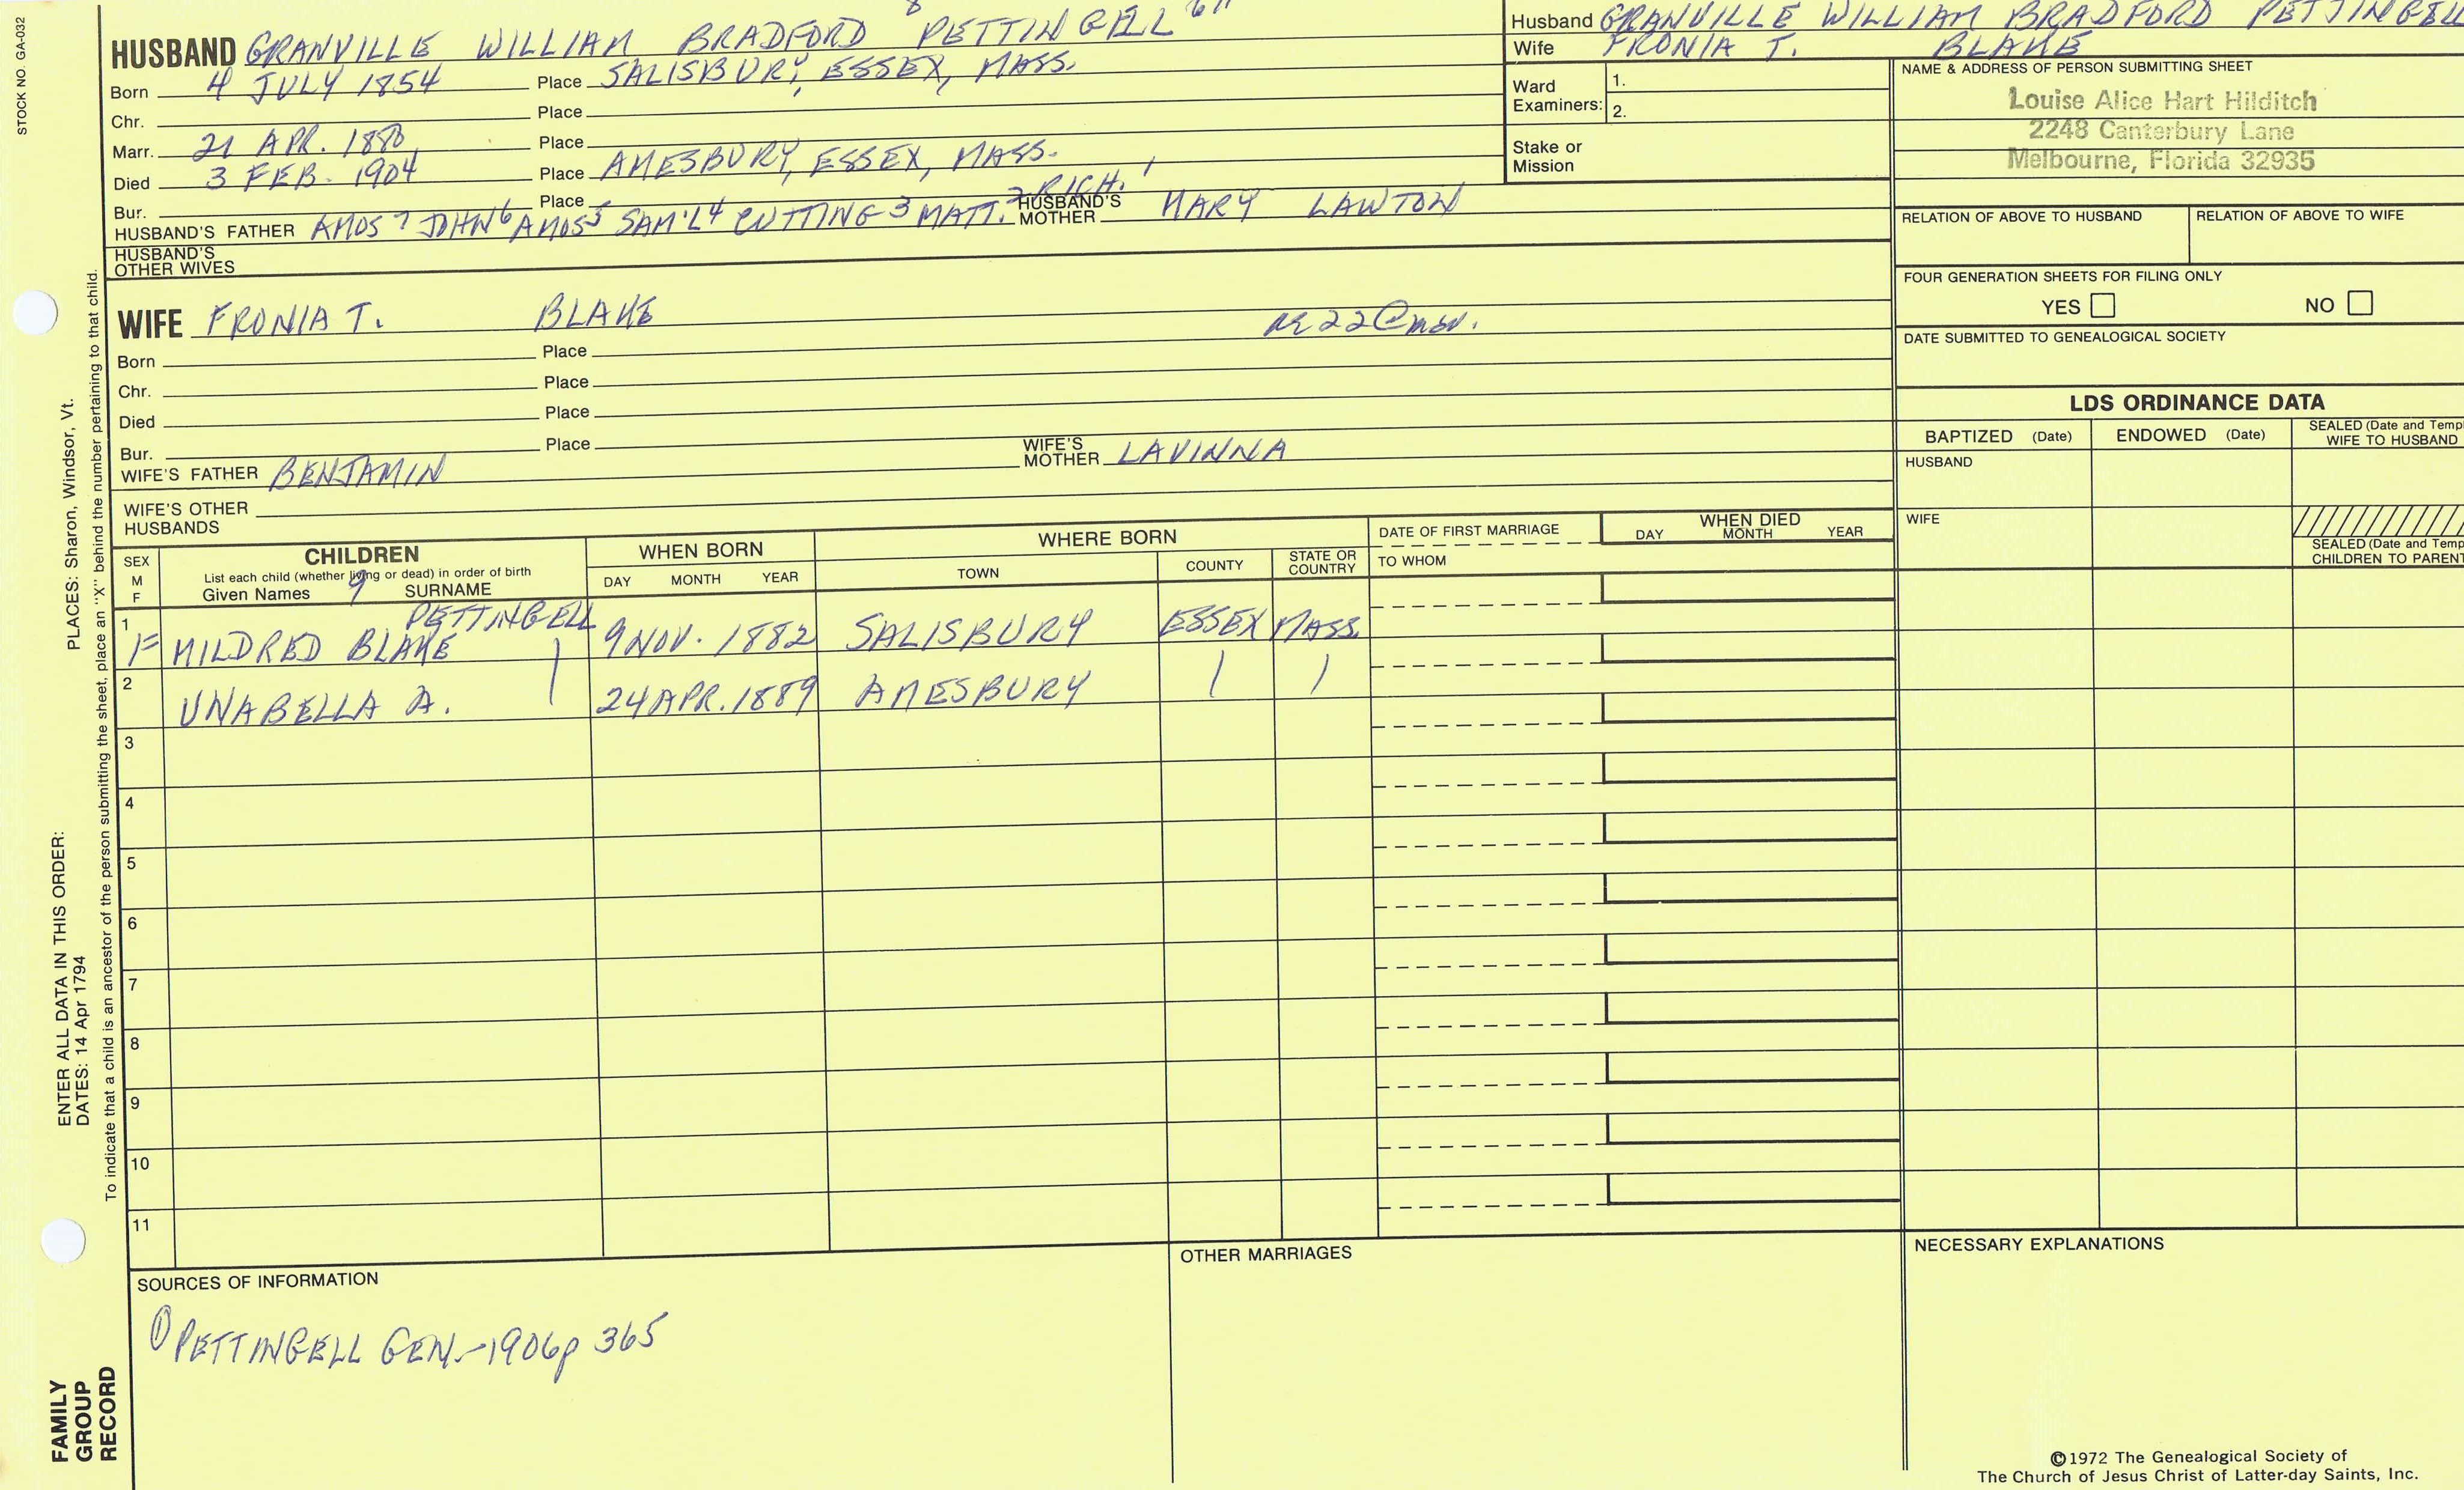 STOCK NO. GA-032
HUSBAND GRANVILLE WILLIAM BRADFORD 8 PETTINGELL 611
Born 4 JULY 1854 Place SALISBURY, ESSEX, MASS.
Chr. Place
Marr. 21 APR. 1880 Place
Died 3 FEB. 1904 Place AMESBURY, ESSEX, MASS.
Bur. Place
HUSBAND'S FATHER AMOS 7 JOHN 6 AMOS 5 SAM'L 4 CUTTING 3 MATT. 2 RICH. 1 HUSBAND'S MOTHER MARY LAWTON
HUSBAND'S OTHER WIVES
WIFE FRONIA T. BLAKE ae 22@mar.
Born Place
Chr. Place
Died Place
Bur. Place
WIFE'S FATHER BENJAMIN WIFE'S MOTHER LAVINNA
WIFE'S OTHER HUSBANDS
Husband GRANVILLE WILLIAM BRADFORD PETTINGELL
Wife FRONIA T. BLAKE
Ward Examiners: 1.
2.
Stake or Mission
NAME & ADDRESS OF PERSON SUBMITTING SHEET
Louise Alice Hart Hilditch
2248 Canterbury Lane
Melbourne, Florida 32935
RELATION OF ABOVE TO HUSBAND RELATION OF ABOVE TO WIFE
FOUR GENERATION SHEETS FOR FILING ONLY
YES NO
DATE SUBMITTED TO GENEALOGICAL SOCIETY
LDS ORDINANCE DATA
BAPTIZED (Date) ENDOWED (Date) SEALED (Date and Templ
WIFE TO HUSBAND
HUSBAND
WIFE
SEALED (Date and Templ
CHILDREN TO PARENT
SEX M F
CHILDREN
List each child (whether living or dead) in order of birth
Given Names 9 SURNAME
WHEN BORN
DAY MONTH YEAR
WHERE BORN
TOWN COUNTY STATE OR COUNTRY
DATE OF FIRST MARRIAGE
TO WHOM
WHEN DIED
DAY MONTH YEAR
1 F MILDRED BLAKE PETTINGELL 9 NOV. 1882 SALISBURY ESSEX MASS.
2 UNABELLA A. 24 APR. 1889 AMESBURY
3
4
5
6
7
8
9
10
11
SOURCES OF INFORMATION
① PETTINGELL GEN.-1906 p 365
OTHER MARRIAGES
NECESSARY EXPLANATIONS
©1972 The Genealogical Society of
The Church of Jesus Christ of Latter-day Saints, Inc.
ENTER ALL DATA IN THIS ORDER:
DATES: 14 Apr 1794
PLACES: Sharon, Windsor, Vt.
To indicate that a child is an ancestor of the person submitting the sheet, place an "X" behind the number pertaining to that child.
FAMILY
GROUP
RECORD